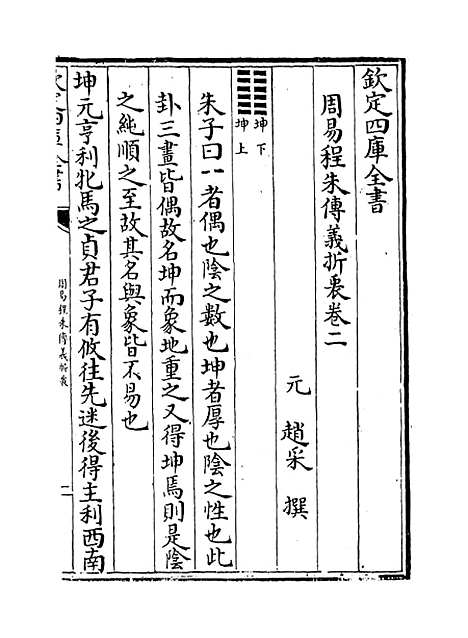 欽定四庫全書
周易程朱傳義折衷卷二
元 趙采 撰
坤下
坤上
朱子曰⚋者偶也陰之數也坤者厚也陰之性也此
卦三畫皆偶故名坤而象地重之又得坤焉則是陰
之純順之至故其名與象皆不易也
坤元亨利牝馬之貞君子有攸往先迷後得主利西南
欽定四庫全書
周易程朱傳義折衷
二